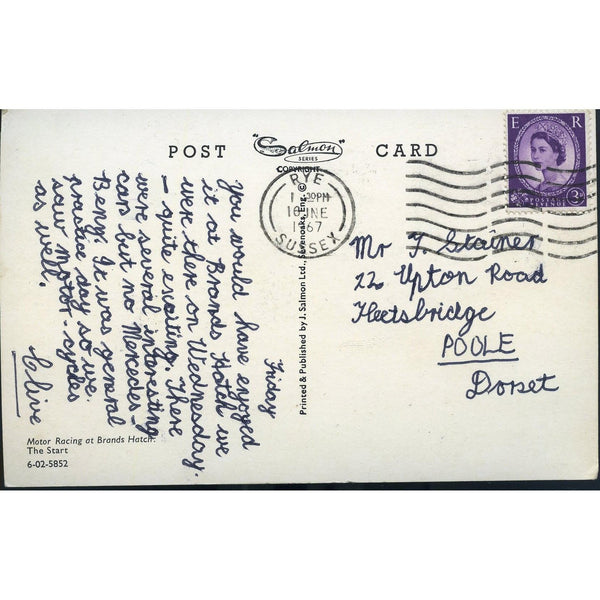 POST "Salmon" CARD
SERIES
COPYRIGHT
E R
POSTAGE
RYE
30PM
10 JNE
1967
SUSSEX
Friday
You would have enjoyed
it at Brands Hatch we
were there on Wednesday.
– quite exciting. There
were several interesting
cars but no Mercedes-
Benz. It was general
practice day so we
saw motor-cycles
as well.
Clive
Printed & Published by J. Salmon Ltd., Sevenoaks, Eng. ©
Mr T. Stainer
22 Upton Road
Fleetsbridge
POOLE
Dorset
Motor Racing at Brands Hatch.
The Start
6-02-5852